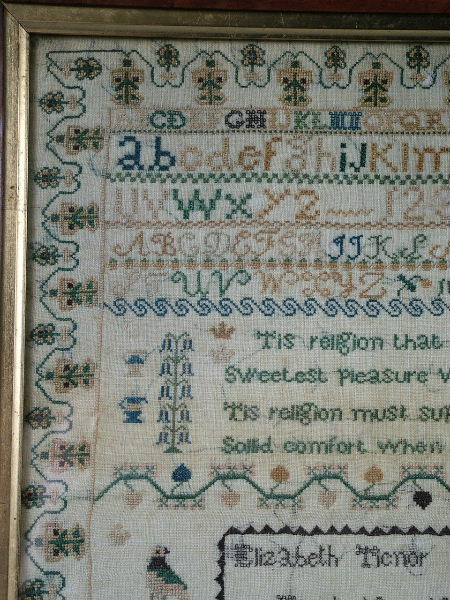 CD GH U KL MN OPQR
a b c d e f g h i J K l m
U V W X Y Z 123
A B C D E F G H I J K L
U V W X Y Z X
Tis religion that
Sweetest pleasure
Tis religion must sup
Sollid comfort when
Elizabeth Ticnor